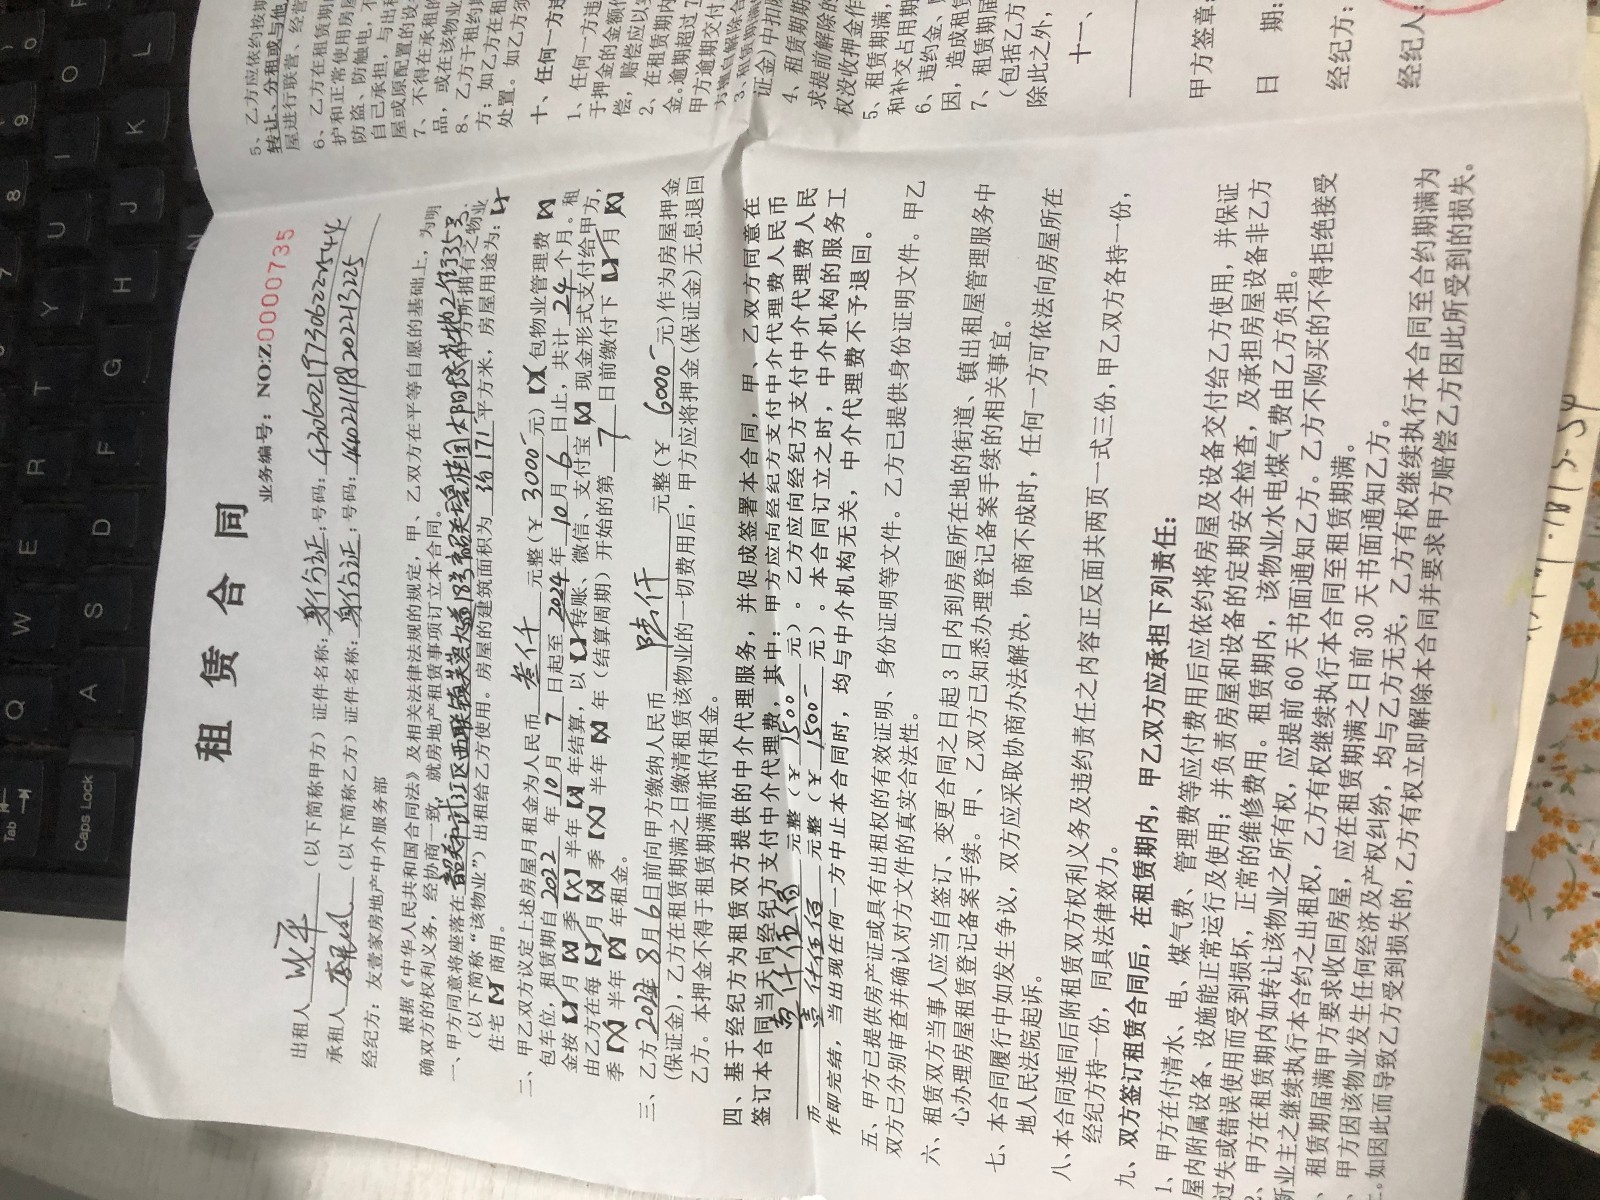 租赁合同
业务编号：NO:Z0000735
出租人（以下简称甲方）证件名称：身份证；号码：
承租人（以下简称乙方）证件名称：身份证；号码：
经纪方：友壹家房地产中介服务部
根据《中华人民共和国合同法》及相关法律法规的规定，甲、乙双方在平等自愿的基础上，为明
确双方的权利义务，经协商一致，就房地产租赁事项订立本合同。
一、甲方同意将座落在 甲方所拥有之物业
（以下简称“该物业”）出租给乙方使用。房屋的建筑面积为 约171 平方米，房屋用途为：【✓】
住宅【 】商用。
二、甲乙双方议定上述房屋月租金为人民币 叁仟 元整（￥ 3000 元）【X】包物业管理费【X】
包车位，租赁期自 2022 年 10 月 7 日起至 2024 年 10 月 6 日止，共计 24 个月。租
金按【✓】月【X】季【X】半年【X】年结算，以【✓】转账、微信、支付宝【X】现金形式支付给甲方，
由乙方在每【✓】月【X】季【X】半年【X】年（结算周期）开始的第 7 日前缴付下【✓】月【X】
季【X】半年【X】年租金。
三、乙方 2022年8月6 日前向甲方缴纳人民币 陆仟 元整（￥ 6000 元）作为房屋押金
（保证金），乙方在租赁期满之日缴清租赁该物业的一切费用后，甲方应将押金（保证金）无息退回
乙方。本押金不得于租赁期满前抵付租金。
四、基于经纪方为租赁双方提供的中介代理服务，并促成签署本合同，甲、乙双方同意在
签订本合同当天向经纪方支付中介代理费，其中：甲方应向经纪方支付中介代理费人民币
壹仟伍佰 元整（￥ 1500 元）。乙方应向经纪方支付中介代理费人民
币 壹仟伍佰 元整（￥ 1500 元）。本合同订立之时，中介机构的服务工
作即完结，当出现任何一方中止本合同时，均与中介机构无关，中介代理费不予退回。
五、甲方已提供房产证或具有出租权的有效证明、身份证明等文件。乙方已提供身份证明文件。甲乙
双方已分别审查并确认对方文件的真实合法性。
六、租赁双方当事人应当自签订、变更合同之日起 3 日内到房屋所在地的街道、镇出租屋管理服务中
心办理房屋租赁登记备案手续。甲、乙双方已知悉办理登记备案手续的相关事宜。
七、本合同履行中如发生争议，双方应采取协商办法解决，协商不成时，任何一方可依法向房屋所在
地人民法院起诉。
八、本合同连同后附租赁双方权利义务及违约责任之内容正反面共两页一式三份，甲乙双方各持一份，
经纪方持一份，同具法律效力。
九、双方签订租赁合同后，在租赁期内，甲乙双方应承担下列责任：
1、甲方在付清水、电、煤气费、管理费等应付费用后应依约将房屋及设备交付给乙方使用，并保证
屋内附属设备、设施能正常运行及使用；并负责房屋和设备的定期安全检查，及承担房屋设备非乙方
过失或错误使用而受到损坏，正常的维修费用。租赁期内，该物业水电煤气费由乙方负担。
2、甲方在租赁期内如转让该物业之所有权，应提前 60 天书面通知乙方。乙方不购买的不得拒绝接受
新业主之继续执行本合约之出租权，乙方有权继续执行本合同至租赁期满。
、租赁期届满甲方要求收回房屋，应在租赁期满之日前 30 天书面通知乙方。
、甲方因该物业发生任何经济及产权纠纷，均与乙方无关，乙方有权继续执行本合同至合约期满为
。如因此而导致乙方受到损失的，乙方有权立即解除本合同并要求甲方赔偿乙方因此所受到的损失。
5、乙方应依约按期
转让、分租或与他
屋进行联营、经营
6、乙方在租赁期
护和正常使用房屋
防盗、防触电，不
自己承担，与出租
屋或原配置的设
7、不得在承租的
品，或在该物业
8、乙方于租约期
方；如乙方在租
处置。如乙方须
十、任何一方违
1、任何一方违
于押金的金额作
偿，赔偿应以
2、在租赁期内
金。逾期超过7
甲方逾期交付
证金）中扣
4、租赁期
求提前解除的
权没收押金作
5、租赁期满，
和补交占用期
6、违约金、
因，造成租赁
7、租赁期届
（包括乙方
除此之外，
十一、
甲方签章：
日 期：
经纪方：
经纪人：
Tab
Caps Lock
Q
W
E
R
T
Y
U
I
O
A
S
D
F
G
H
J
K
L
N
7
8
9
0